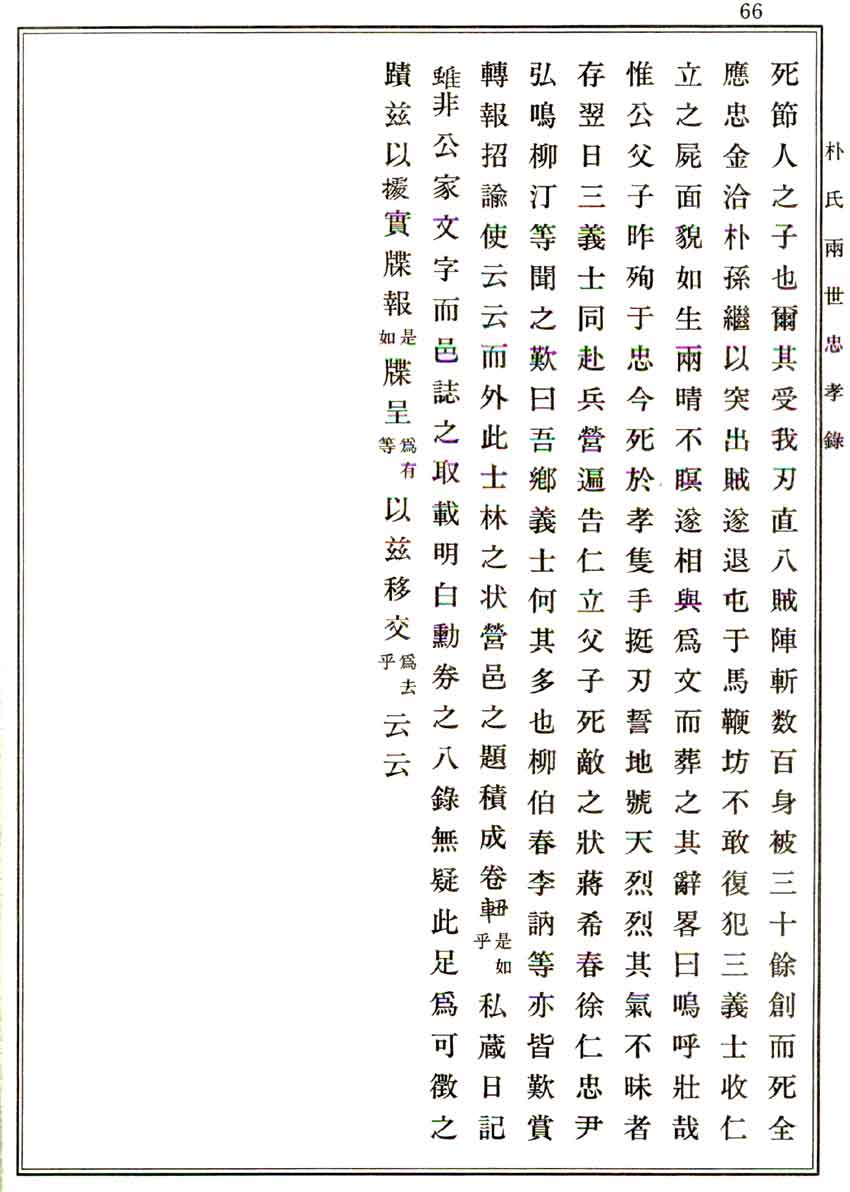 66
朴氏兩世忠孝錄
死節人之子也爾其受我刃直八賊陣斬数百身被三十餘創而死全
應忠金洽朴孫繼以突出賊遂退屯于馬鞭坊不敢復犯三義士收仁
立之屍面貌如生兩晴不瞑遂相與爲文而葬之其辭畧曰鳴呼壯哉
惟公父子昨殉于忠今死於孝隻手挺刃誓地號天烈烈其氣不昧者
存翌日三義士同赴兵營遍告仁立父子死敵之狀蔣希春徐仁忠尹
弘鳴柳汀等聞之歎曰吾鄕義士何其多也柳伯春李訥等亦皆歎賞
轉報招諭使云云而外此士林之状營邑之題積成卷軸是如乎私蔵日記
雖非公家文字而邑誌之取載明白勳券之八錄無疑此足爲可徵之
蹟兹以據實牒報是如牒呈爲有等以兹移交爲去乎云云